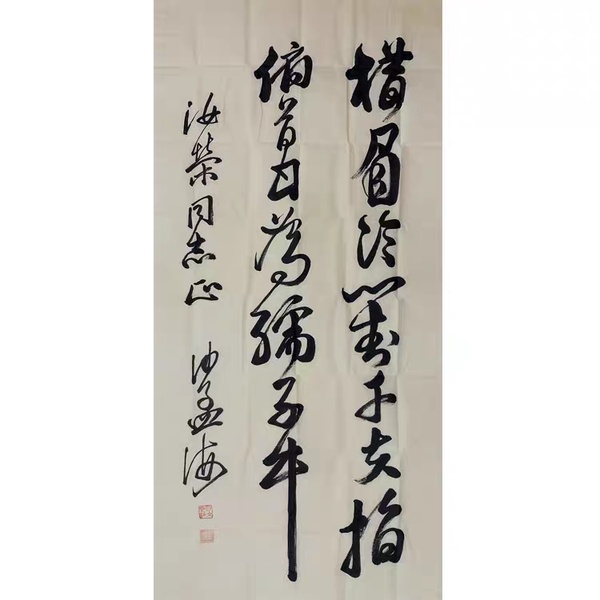 横眉冷對千夫指
俯首甘為孺子牛
汝榮同志正 沙孟海